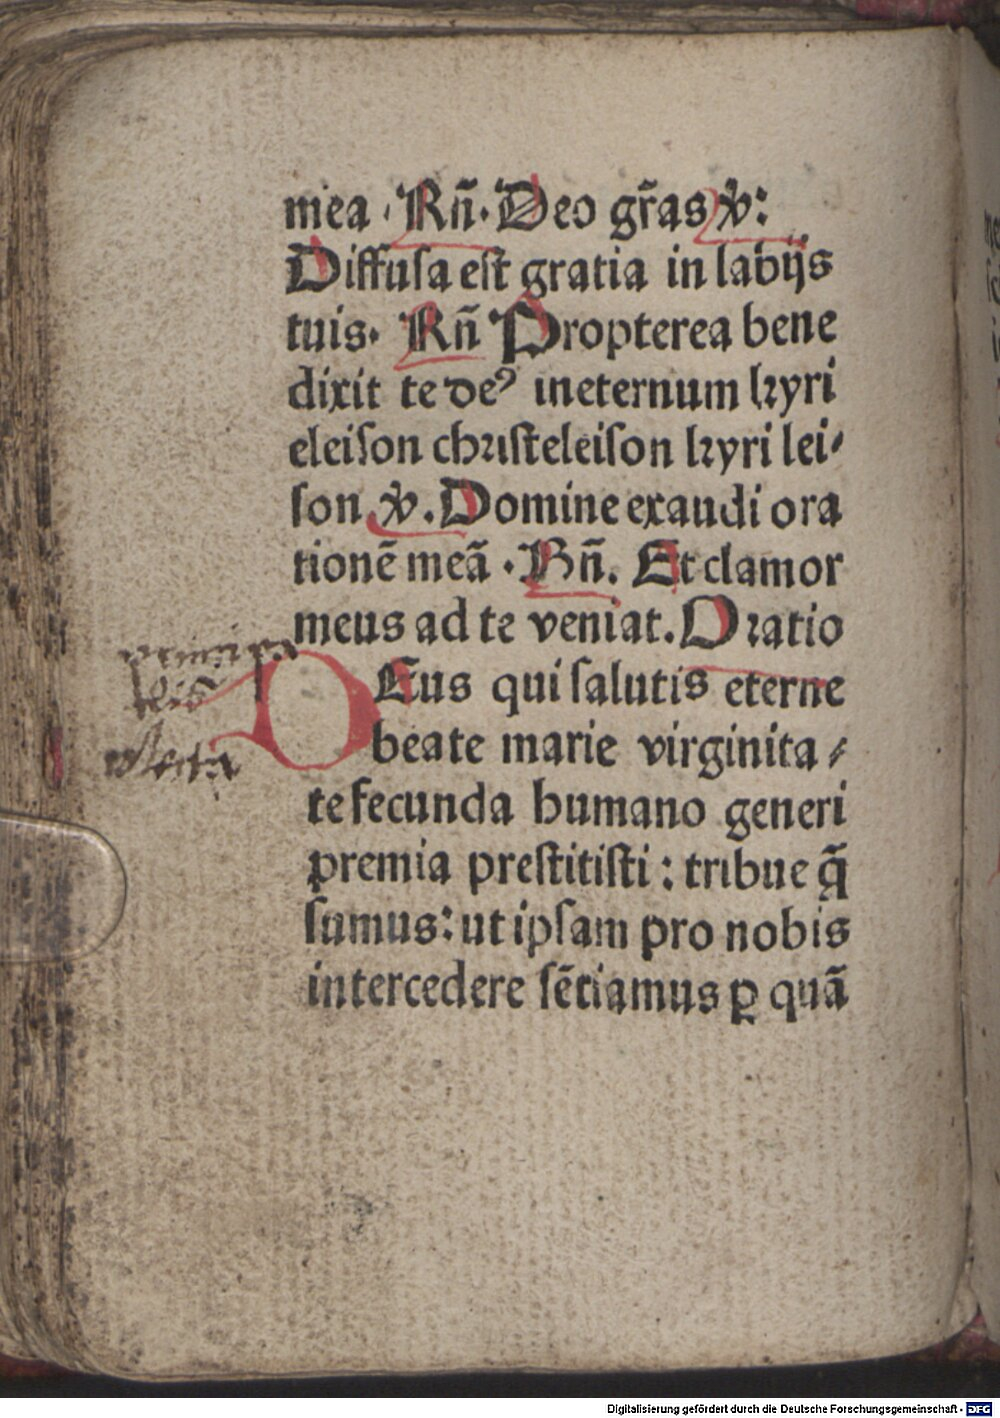 mea . Rñ. Deo gr̄as ℣:
Diffusa est gratia in labijs
tuis. Rñ Propterea bene
dixit te deꝰ ineternum kyri
eleison christeleison kyri lei⸗
son ℣. Domine exaudi ora
tionē meā . Rñ. Et clamor
meus ad te veniat. Oratio
DEus qui salutis eterne
beate marie virginita⸗
te fecunda humano generi
premia prestitisti : tribue q̄
sumus: ut ipsam pro nobis
intercedere sētiamus ꝑ quā
Digitalisierung gefördert durch die Deutsche Forschungsgemeinschaft - DFG